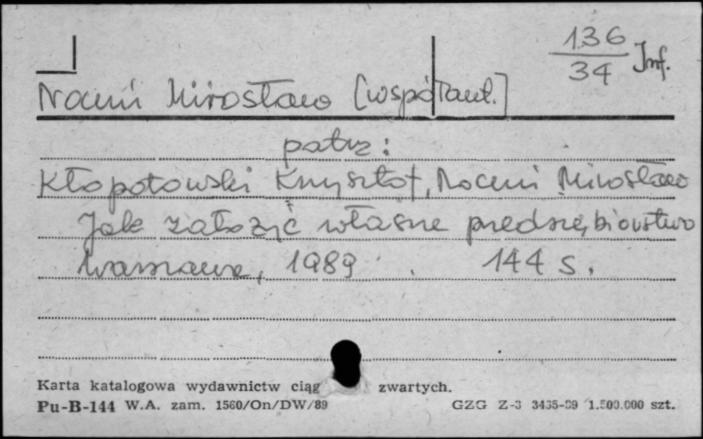 136
34 Inf.
Nocuń Mirosław [współaut.]
patrz:
Kłopotowski Krzysztof, Nocuń Mirosław
Jak założyć własne przedsiębiorstwo
Warszawa, 1989 . 144 s.
Karta katalogowa wydawnictw ciąg zwartych.
Pu-B-144 W.A. zam. 1560/On/DW/89 GZG Z-3 3435-89 1.500.000 szt.